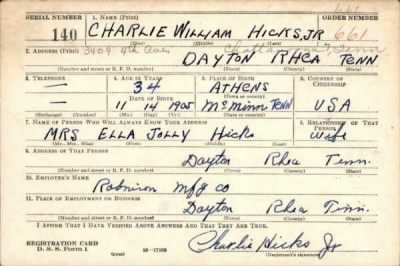 661
SERIAL NUMBER 1. NAME (Print) ORDER NUMBER
140 CHARLIE WILLIAM HICKS, JR 661
(First) (Middle) (Last)
2. ADDRESS (Print) 3409 4th Ave Chattanooga 7, Tenn
DAYTON RHEA TENN
(Number and street or R. F. D. number) (Town) (County) (State)
3. TELEPHONE 4. AGE IN YEARS 5. PLACE OF BIRTH 6. COUNTRY OF CITIZENSHIP
— 34 ATHENS
DATE OF BIRTH (Town or county)
— 11 14 1905 McMinn TENN USA
(Exchange) (Number) (Mo.) (Day) (Yr.) (State or country)
7. NAME OF PERSON WHO WILL ALWAYS KNOW YOUR ADDRESS 8. RELATIONSHIP OF THAT PERSON
MRS ELLA JOLLY Hicks Wife
(Mr., Mrs., Miss) (First) (Middle) (Last)
9. ADDRESS OF THAT PERSON
Dayton Rhea Tenn.
(Number and street or R. F. D. number) (Town) (County) (State)
10. EMPLOYER'S NAME
Robinson Mfg Co
11. PLACE OF EMPLOYMENT OR BUSINESS
Dayton Rhea Tenn
(Number and street or R. F. D. number) (Town) (County) (State)
I AFFIRM THAT I HAVE VERIFIED ABOVE ANSWERS AND THAT THEY ARE TRUE.
REGISTRATION CARD
D. S. S. Form 1 (over) Charlie Hicks Jr
(Registrant's signature)